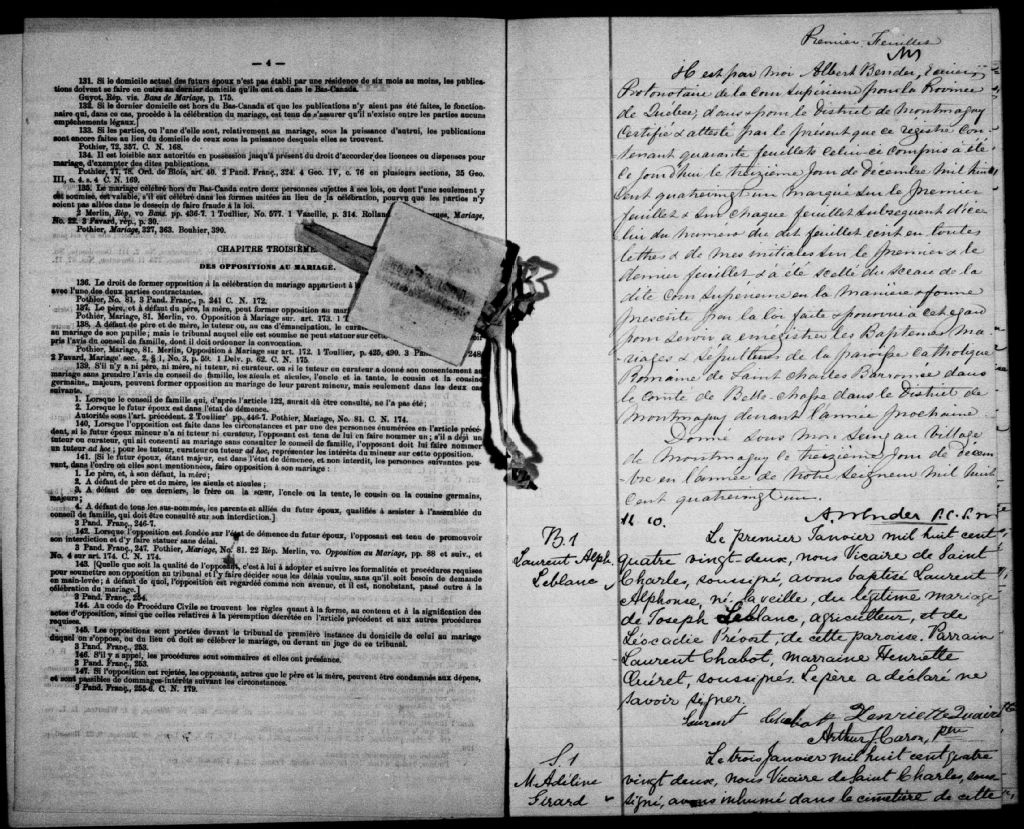 — 4 —
131. Si le domicile actuel des futurs époux n'est pas établi par une résidence de six mois au moins, les publica-
tions doivent se faire en outre au dernier domicile qu'ils ont eu dans le Bas-Canada.
Guyot, Rép. vis. Bans de Mariage, p. 175.
132. Si le dernier domicile est hors du Bas-Canada et que les publications n'y aient pas été faites, le fonction-
naire qui, dans ce cas, procède à la célébration du mariage, est tenu de s'assurer qu'il n'existe entre les parties aucuns
empêchements légaux.
133. Si les parties, ou l'une d'elles sont, relativement au mariage, sous la puissance d'autrui, les publications
sont encore faites au lieu du domicile de ceux sous la puissance desquels elles se trouvent.
Pothier, 72, 357. C. N. 168.
134. Il est loisible aux autorités en possession jusqu'à présent du droit d'accorder des licences ou dispenses pour
mariage, d'exempter des dites publications.
Pothier, 77, 78. Ord. de Blois, art. 40. 2 Pand. Franç., 324. 4 Geo. IV, c. 76 en plusieurs sections, 35 Geo.
III, c. 4. s. 4 C. N. 169.
135. Le mariage célébré hors du Bas-Canada entre deux personnes sujettes à ses lois, ou dont l'une seulement y
est soumise, est valable, s'il est célébré dans les formes usitées au lieu de la célébration, pourvu que les parties n'y
soient pas allées dans le dessein de faire fraude à la loi.
2 Merlin, Rép, vo Bans. pp. 436-7. 1 Toullier, No. 577. 1 Vazeille, p. 314. Rolland Mariage,
No. 22. 3 Favard, rép., p. 30.
Pothier, Mariage, 327, 363. Bouhier, 390.
CHAPITRE TROISIÈME
DES OPPOSITIONS AU MARIAGE.
136. Le droit de former opposition à la célébration du mariage appartient à
avec l'une des deux parties contractantes.
Pothier, No. 81. 3 Pand. Franç., p. 241 C. N. 172.
137. Le père, et à défaut du père, la mère, peut former opposition au mar
Pothier, Mariage, 81. Merlin, vo. Opposition à Mariage sur art. 173.
138. A défaut de père et de mère, le tuteur, ou, au cas d'émancipation, le cura
au mariage de son pupille; mais le tribunal auquel elle est soumise ne peut statuer sur cette
pris l'avis du conseil de famille, dont il doit ordonner la convocation.
Pothier, Mariage, 81. Merlin, Opposition à Mariage sur art. 172. 1 Toullier, p. 425, 490. 3 Pan 248
2 Favard, Mariage' sec. 2, § 1, No. 3, p. 59. 1 Delv. p. 62. C. N. 175.
139. S'il n'y a ni père, ni mère, ni tuteur, ni curateur, ou si le tuteur ou curateur a donné son consentement au
mariage sans prendre l'avis du conseil de famille, les aïeuls et aïeules, l'oncle et la tante, le cousin et la cousine
germains, majeurs, peuvent former opposition au mariage de leur parent mineur, mais seulement dans les deux cas
suivants.
1. Lorsque le conseil de famille qui, d'après l'article 122, aurait dû être consulté, ne l'a pas été;
2. Lorsque le futur époux est dans l'état de démence.
Autorités sous l'art. précédent. 2 Toullier' pp. 446-7. Pothier, Mariage, No. 81. C. N. 174.
140. Lorsque l'opposition est faite dans les circonstances et par une des personnes énumérées en l'article précé-
dent, si le futur époux mineur n'a ni tuteur ni curateur, l'opposant est tenu de lui en faire nommer un; s'il a déjà un
tuteur ou curateur, qui ait consenti au mariage sans consulter le conseil de famille, l'opposant doit lui faire nommer
un tuteur ad hoc; pour les tuteur, curateur ou tuteur ad hoc, représenter les intérêts du mineur sur cette opposition.
141. [Si le futur époux, étant majeur, est dans l'état de démence, et non interdit, les personnes suivantes peu-
vent, dans l'ordre où elles sont mentionnées, faire opposition à son mariage:
1. Le père, et, à son défaut, la mère;
2. A défaut de père et de mère, les aïeuls et aïeules;
3. A défaut de ces derniers, le frère ou la sœur, l'oncle ou la tante, le cousin ou la cousine germains,
majeurs;
4. A défaut de tous les sus-nommés, les parents et alliés du futur époux, qualifiés à assister à l'assemblée du
conseil de famille, qui doit être consulté sur son interdiction.]
3 Pand. Franç., 246-7.
142. Lorsque l'opposition est fondée sur l'état de démence du futur époux, l'opposant est tenu de promouvoir
son interdiction et d'y faire statuer sans délai.
3 Pand. Franç., 247. Pothier, Mariage, No. 81. 22 Rép. Merlin, vo. Opposition au Mariage, pp. 88 et suiv., et
No. 4 sur art. 174. C. N. 174.
143. [Quelle que soit la qualité de l'opposant, c'est à lui à adopter et suivre les formalités et procédures requises
pour soumettre son opposition au tribunal et l'y faire décider sous les délais voulus, sans qu'il soit besoin de demande
en main-levée; à défaut de quoi, l'opposition est regardée comme non avenue, et il est, nonobstant, passé outre à la
célébration du mariage.]
3 Pand. Franç., 254.
144. Au code de Procédure Civile se trouvent les règles quant à la forme, au contenu et à la signification des
actes d'opposition, ainsi que celles relatives à la péremption décrétée en l'article précédent et aux autres procédures
requises.
145. Les oppositions sont portées devant le tribunal de première instance du domicile de celui au mariage
duquel on s'oppose, ou du lieu où doit se célébrer le mariage, ou devant un juge de ce tribunal.
3 Pand. Franç., 253.
146. S'il y a appel, les procédures sont sommaires et elles ont préséance.
3 Pand. Franç., 253.
147. Si l'opposition est rejetée, les opposants, autres que le père et la mère, peuvent être condamnés aux dépens,
et sont passibles de dommages-intérêts suivant les circonstances.
3 Pand. Franç., 255-6. C. N. 179.
Premier Feuillet
Il est par moi Albert Bender, Ecuier,
Protonotaire de la Cour Supérieure pour la Province
de Québec, dans & pour le District de Montmagny
certifié & attesté par le présent que ce registre con-
tenant quarante feuillets celui-ci compris a été
ce jourd'hui le treizième jour de Décembre mil huit
cent quatrevingt un marqué sur le premier
feuillet & sur chaque feuillet subséquent d'ice-
lui du numéro du dit feuillet écrit en toutes
lettres & de mes initiales sur le premier & le
dernier feuillet & a été scellé du sceau de la
dite Cour Supérieure en la manière & forme
prescrite par la loi faite & pourvue à cet égard
pour servir à enrégistrer les Baptêmes, Ma-
riages & Sépultures de la paroisse Catholique
Romaine de Saint Charles Barromée dans
le Comté de Bellechasse dans le District de
Montmagny durant l'année prochaine
Donné sous mon seing au Village
de Montmagny le treizième jour de décem-
bre en l'année de Notre Seigneur mil huit
cent quatrevingt un.
A. Bender P.C.S.M
B. 1
Laurent Alph.
Leblanc
Le premier Janvier mil huit cent
quatre vingt-deux, nous Vicaire de Saint
Charles, soussigné, avons baptisé Laurent
Alphonse, né la veille, du légitime mariage
de Joseph Leblanc, agriculteur, et de
Léocadie Prévost, de cette paroisse. Parrain
Laurent Chabot, marraine Henriette
Guéret, soussignés. Le père a déclaré ne
savoir signer.
Laurent Chabot Henriette
Arthur J. Caron, ptre
S. 1
M. Adéline
Girard
Le trois Janvier mil huit cent quatre
vingt deux, nous Vicaire de Saint Charles, sous-
signé, avons inhumé dans le cimetière de cette